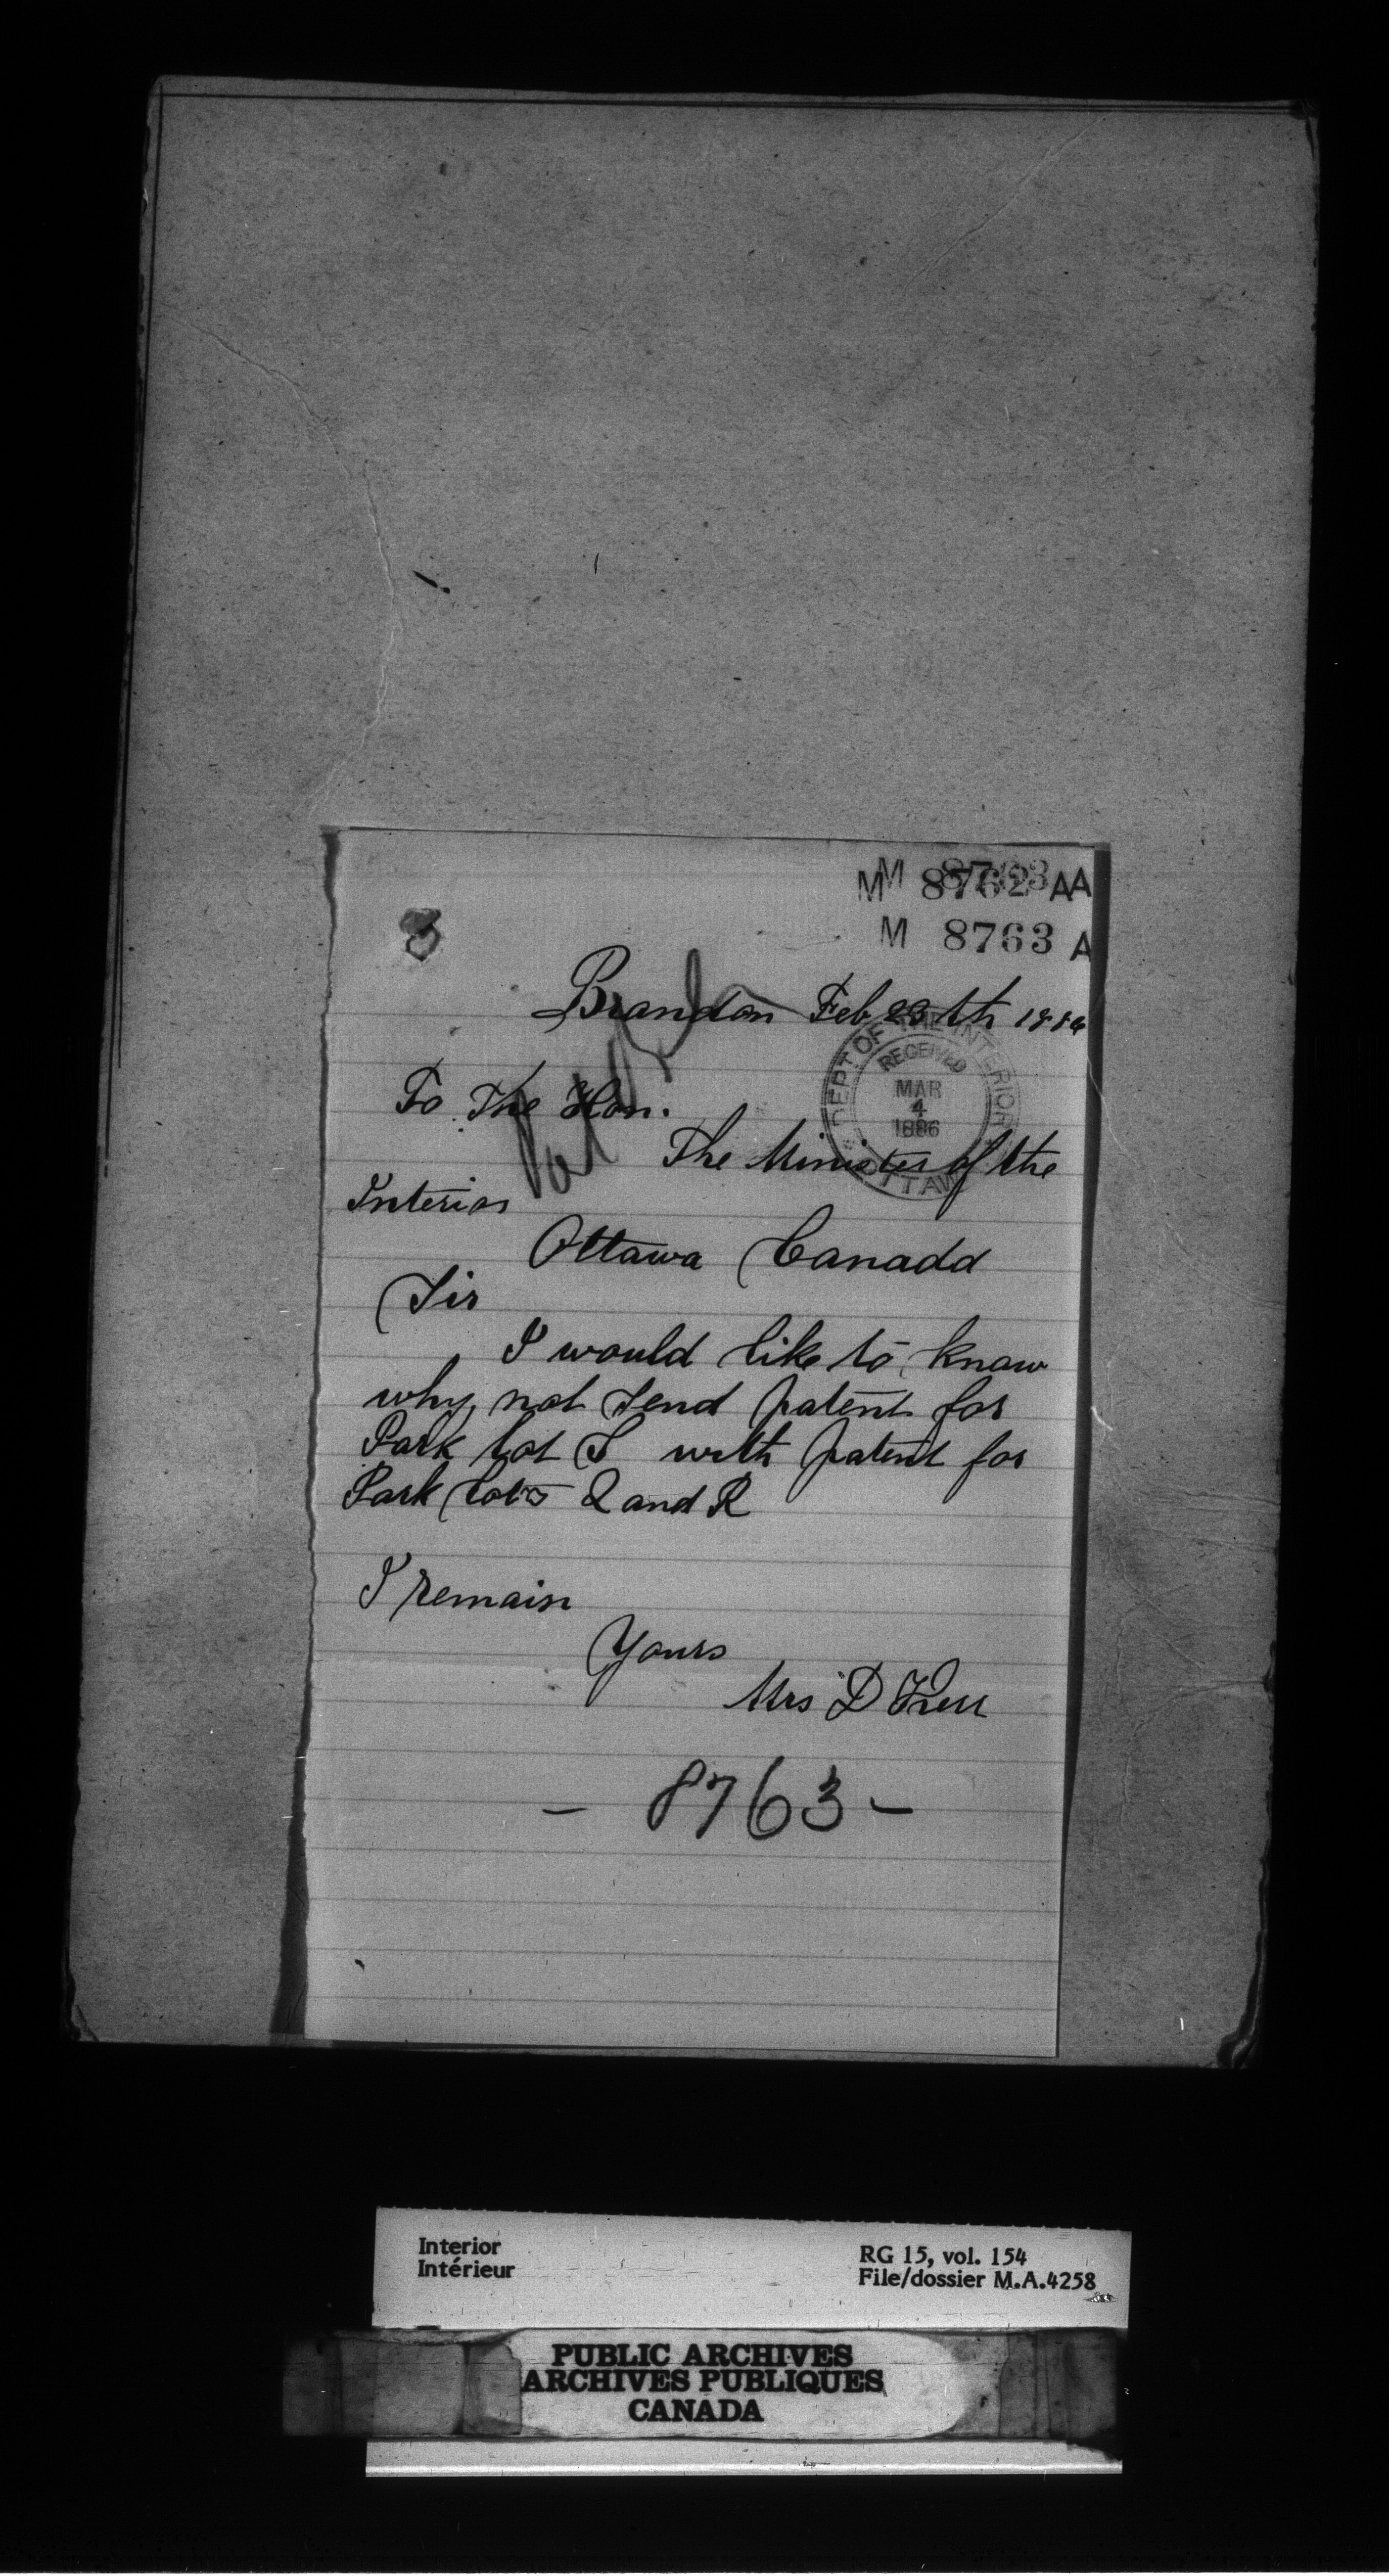 M 8762 AA
M 8763 A
Brandon Feb 23th 1886
DEPT. OF THE INTERIOR
RECEIVED
MAR
4
1886
OTTAWA
To The Hon.
The Minister of the
Interior
Ottawa Canada
Sir
I would like to know
why not send patent for
Park lot S with patent for
Park Lots Q and R
I remain
Yours
Mrs D
- 8763 -
Interior
Intérieur
RG 15, vol. 154
File/dossier M.A.4258
PUBLIC ARCHIVES
ARCHIVES PUBLIQUES
CANADA